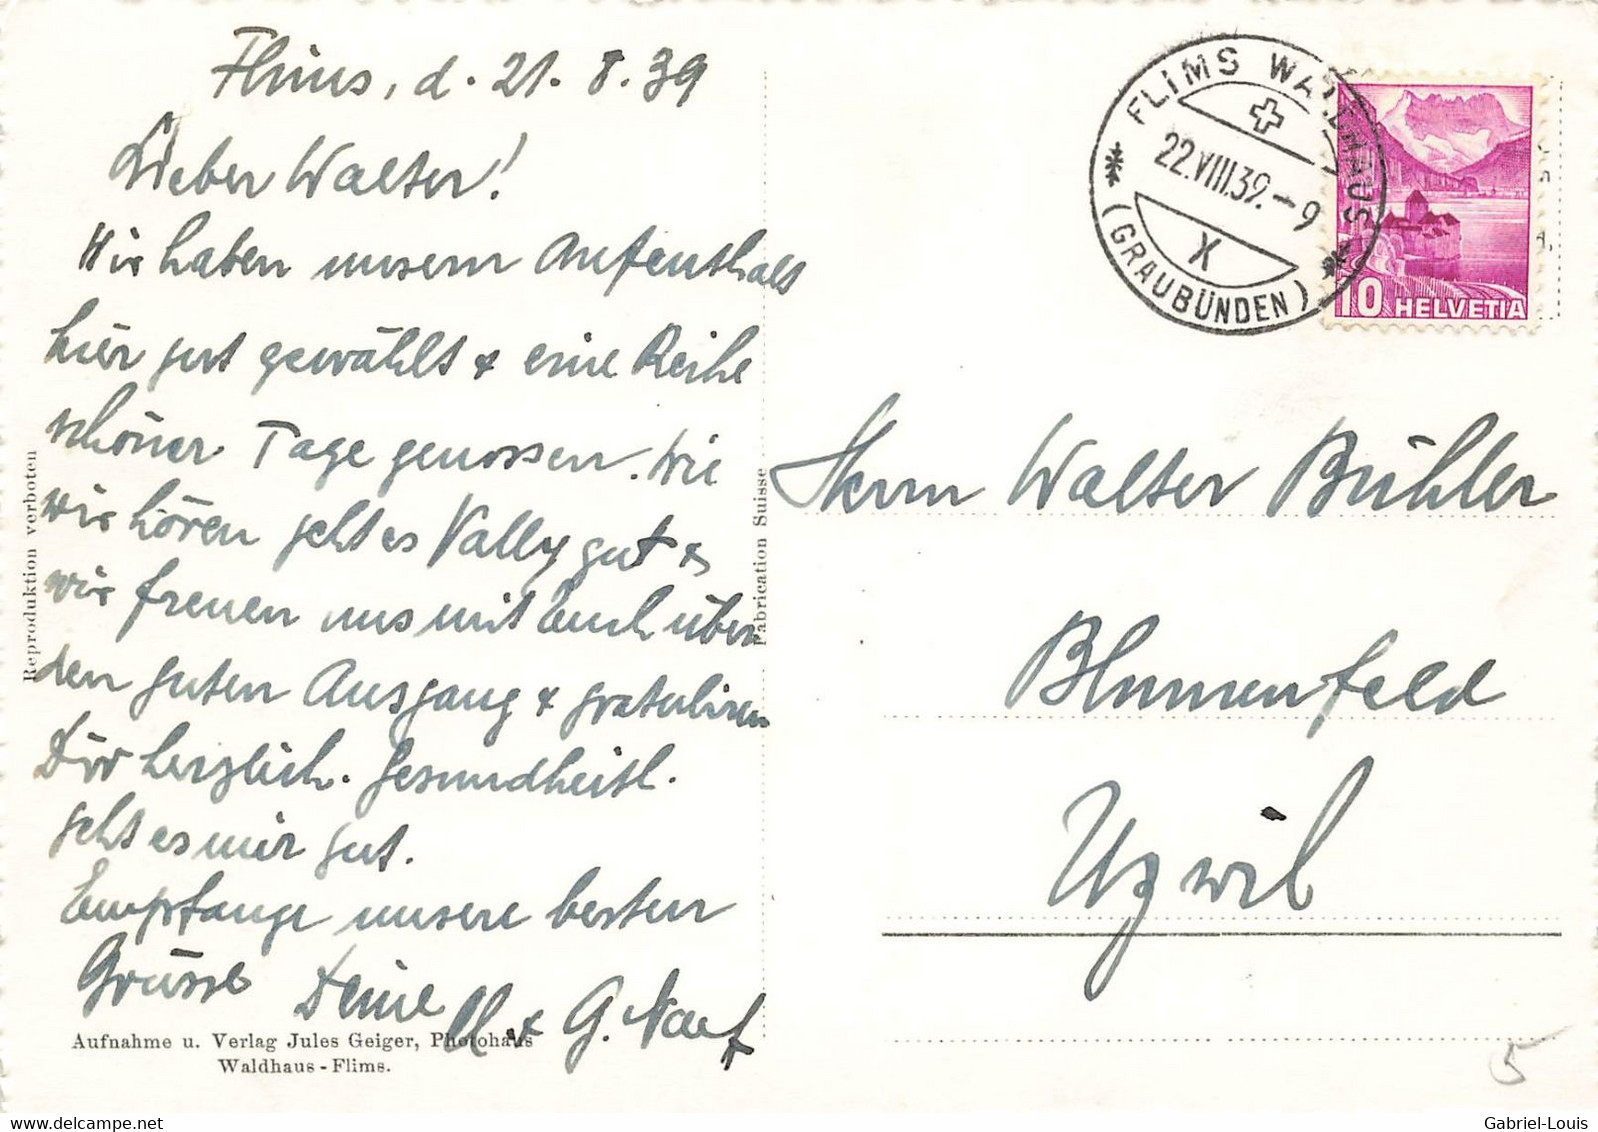 Flims, d. 21. 8. 39
Lieber Walter!
Wir haben unsern Aufenthalt
hier gut gewählt & eine Reihe
schöner Tage genossen. Wie
wir hören geht es Vally gut &
wir freuen uns mit Euch über
den guten Ausgang & gratulieren
Dir herzlich. Gesundheitl.
geht es mir gut.
Empfange unsere besten
Grüsse Deine
& G. Naef
Reproduktion verboten
Fabrication Suisse
Aufnahme u. Verlag Jules Geiger, Photohaus
Waldhaus - Flims.
FLIMS WALDHAUS
22.VIII.39.-9
X
(GRAUBÜNDEN)
10 HELVETIA
Herrn Walter Bühler
Blumenfeld
Uzwil
5
Gabriel-Louis